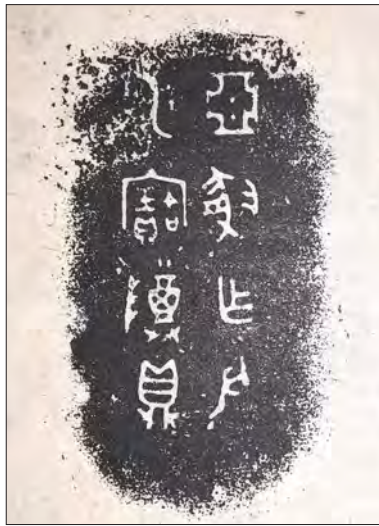 亞乍父
乙寶尊鼎